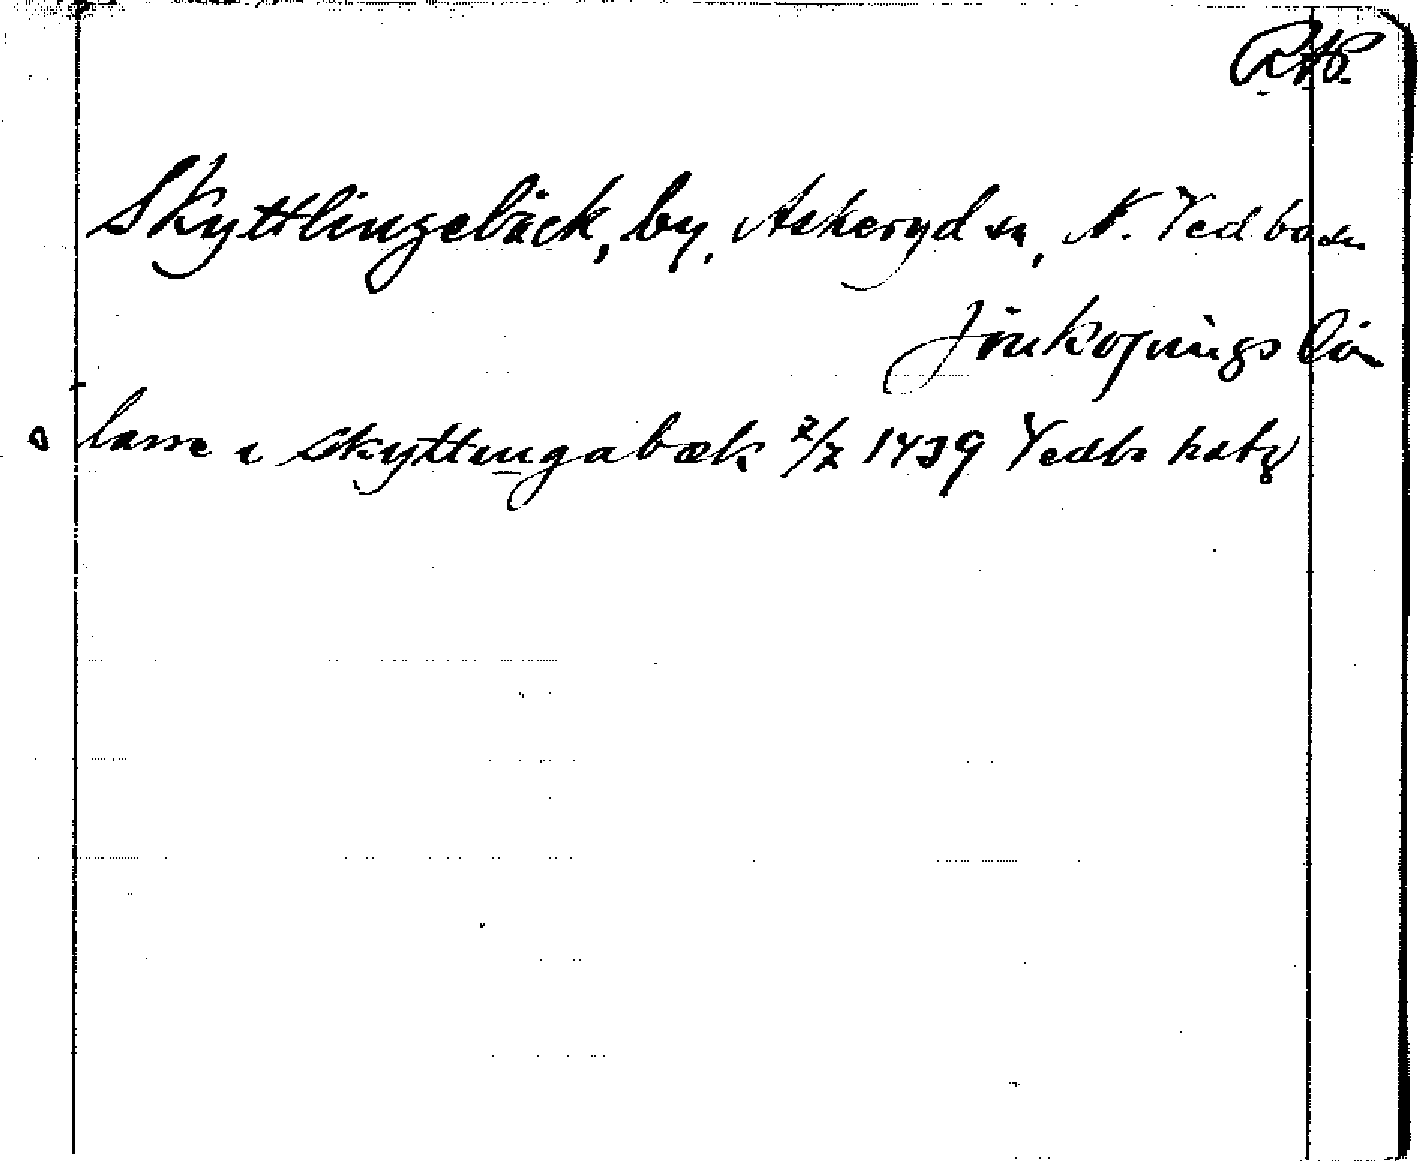 RAP.
Skyttlingebäck, by, Askeryd sn, N. Vedbo hd
Jönköpings län
o lasse i skyttingabæk 2/2 1439 Vedbo